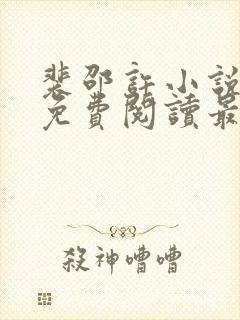 裴邵許小說
免費閱讀最
殺神嘈嘈